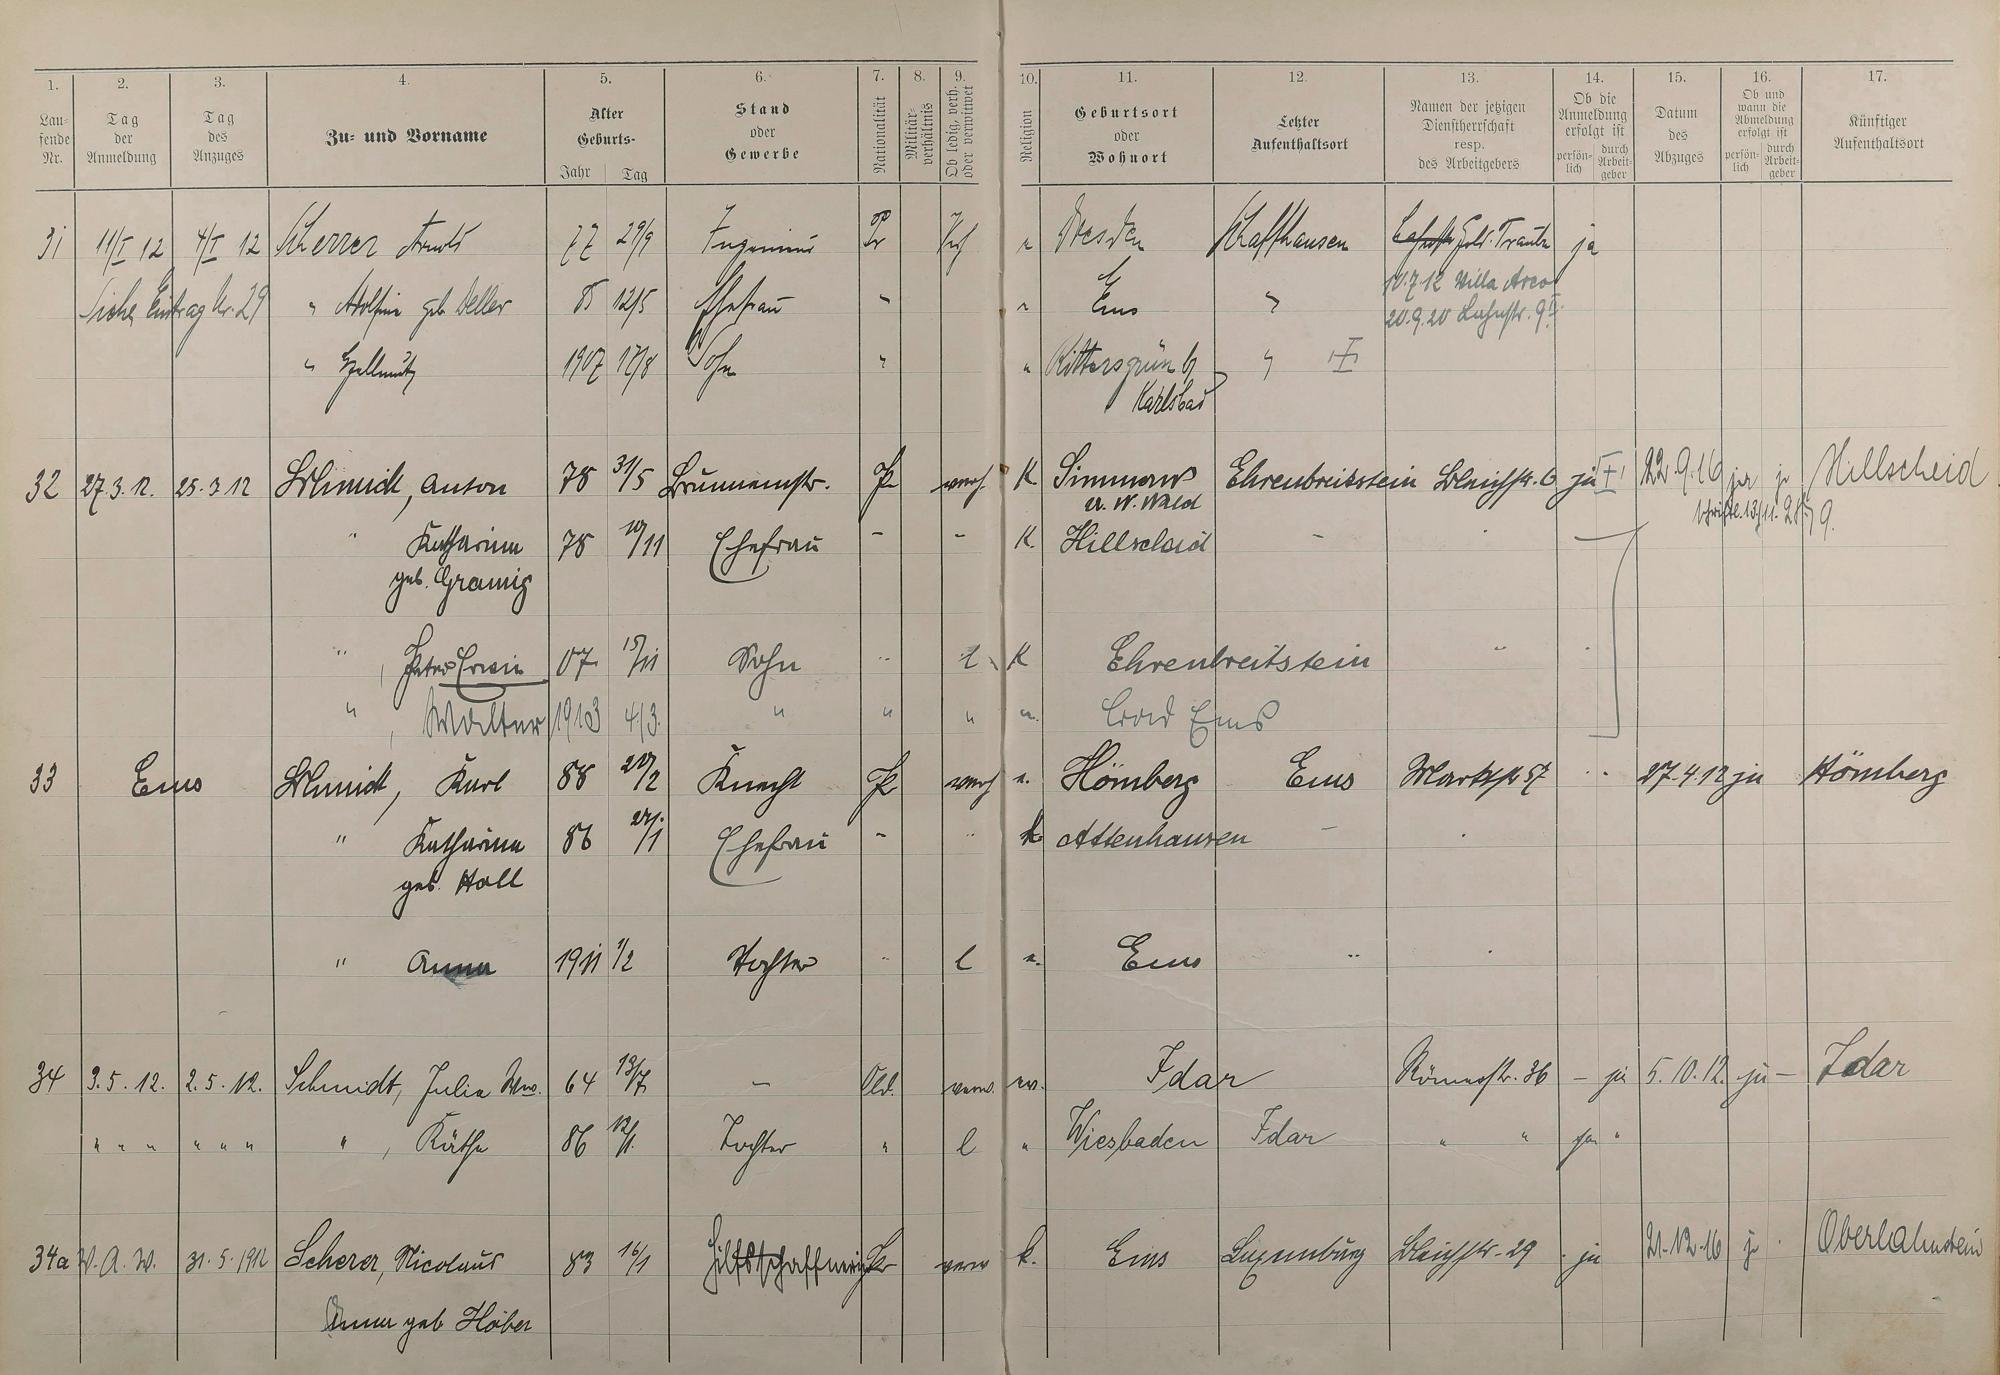 1. 2. 3. 4. 5. 6. 7. 8. 9. 10. 11. 12. 13. 14. 15. 16. 17.
Lau-
fende
Nr.
Tag
der
Anmeldung
Tag
des
Anzuges
Zu- und Vorname
Alter
Geburts-
Jahr Tag
Stand
oder
Gewerbe
Nationalität
Militär-
verhältnis
Ob ledig, verh.
oder verwitwet
Religion
Geburtsort
oder
Wohnort
Letzter
Aufenthaltsort
Namen der jetzigen
Dienstherrschaft
resp.
des Arbeitgebers
Ob die
Anmeldung
erfolgt ist
persön-
lich
durch
Arbeit-
geber
Datum
des
Abzuges
Ob und
wann die
Abmeldung
erfolgt ist
persön-
lich
durch
Arbeit-
geber
Künftiger
Aufenthaltsort
31 11/I 12 4/I 12 Scherrer 77 29/9 Ingenieur Pr Dresden Gold. Traube ja
Siehe Eintrag Nr. 29 " geb. 85 12/5 Ehefrau " " Ems "
10.7.12 Villa Arco
20.9.20 Lahnstr. 9
" Hellmuth 1907 17/8 Sohn " " Rittersgrün b/ "
Karlsbad
32 27.3.12. 25.3.12 Schmidt, Anton 78 31/5 Brunnenstr. Pr. verh. K Simmern Ehrenbreitstein Bleichstr. 6 ja 22.9.16 ja Hillscheid
a. W. Wald
13/11.
" Katharina 78 11 Ehefrau - - K. Hillscheid -
geb. Gramig
" , Peter Erwin 07. 15/11 Sohn " l K Ehrenbreitstein "
" , Walter 1913 4/3. " " " " Bad Ems
33 Ems Schmidt, Karl 88 20/2 Knecht Pr verh Hömberg Ems Marktstr 57 27.4.12 ja Hömberg
" Katharina 86 Ehefrau - " k Attenhausen -
geb. Holl
" Anna 1911 1/2 Tochter " l Ems "
34 3.5.12. 2.5.12. Schmidt, Julie Ww. 64 13/7. - Old. verw. Idar Römerstr. 36 - ja 5.10.12. ja - Idar
" " " " " " " , Käthe 86 12/1. Tochter " l " Wiesbaden Idar " " "
34a W. A. W. 31.5.1912 Scherer, Nicolaus 83 16/1 Hilfsschaffner Pr k. Ems Luxemburg Bleichstr. 29 ja 21.12.16 ja Oberlahnstein
Anna geb Höber